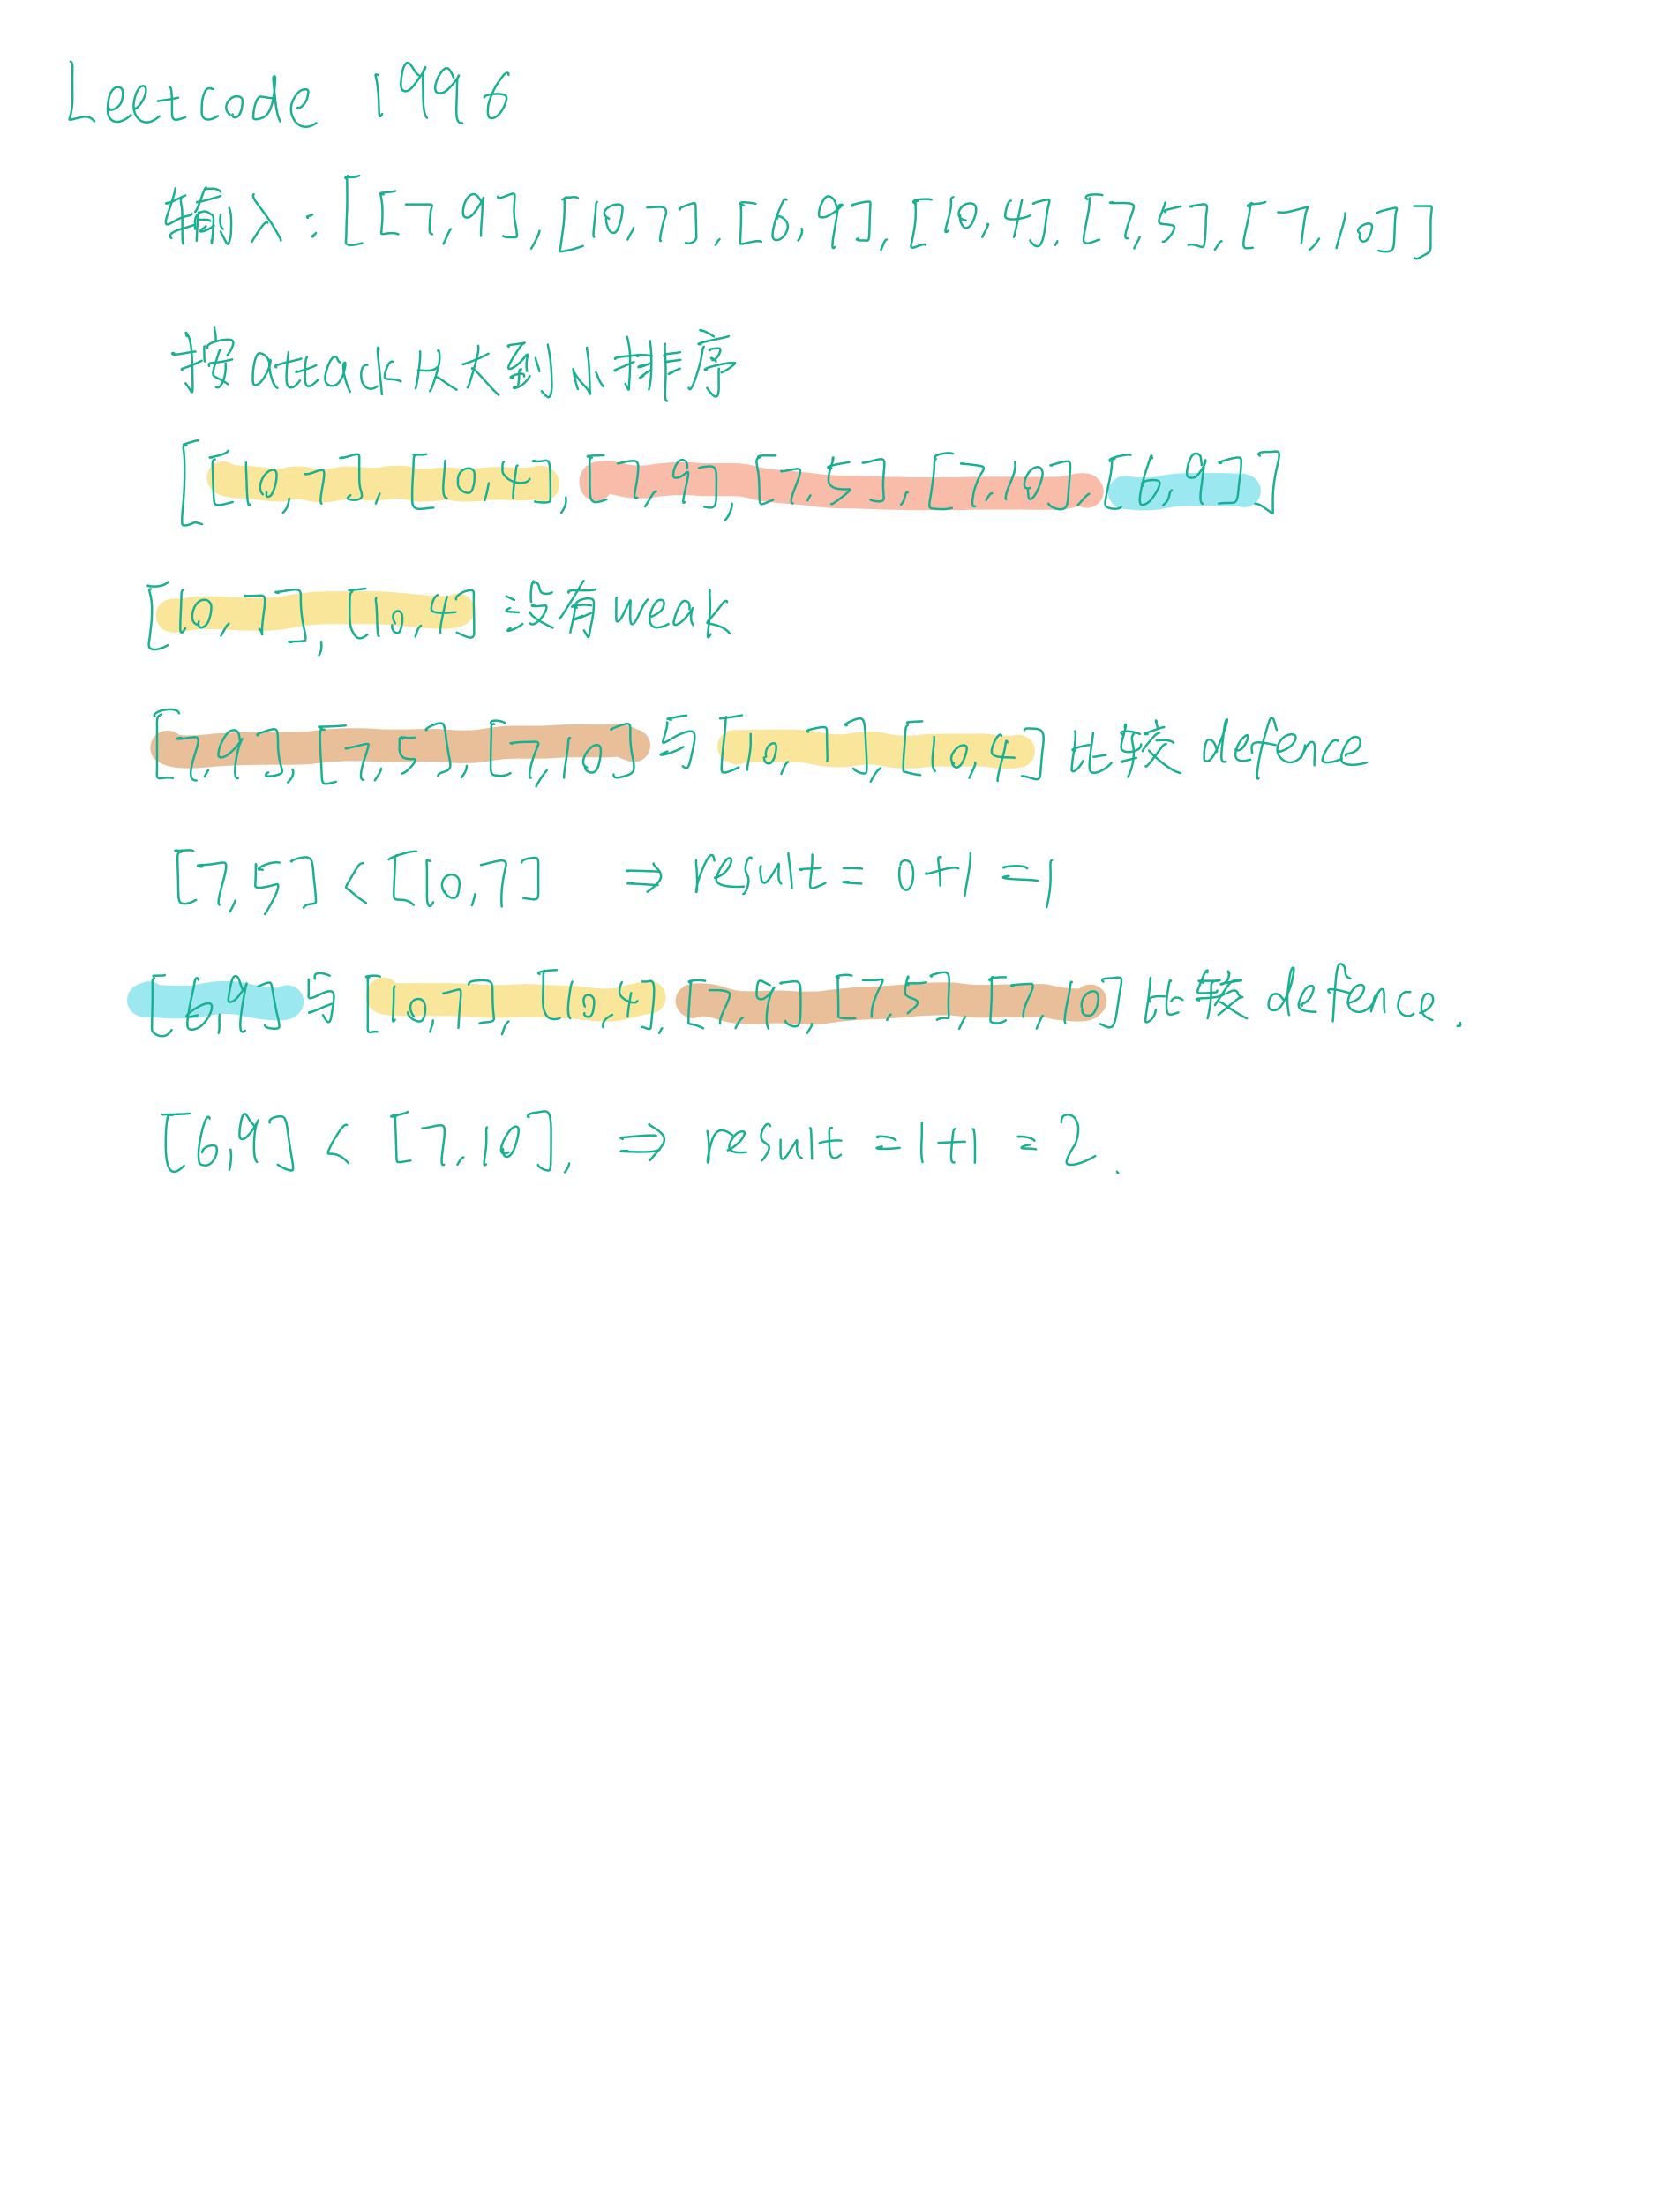 Leetcode 1996
输入: [[7,9],[10,7],[6,9],[10,4],[7,5],[7,10]]
按attack从大到小排序
[[10,7],[10,4],[7,9],[7,5],[7,10],[6,9]]
[10,7],[10,4] 没有weak
[7,9],[7,5],[7,10]与[10,7],[10,4]比较defene
[7,5]<[10,7] ⇒ result= 0+1=1
[6,9]与[10,7],[10,4],[7,9],[7,5],[7,10]比较defence.
[6,9]<[7,10], ⇒ result=1+1=2.